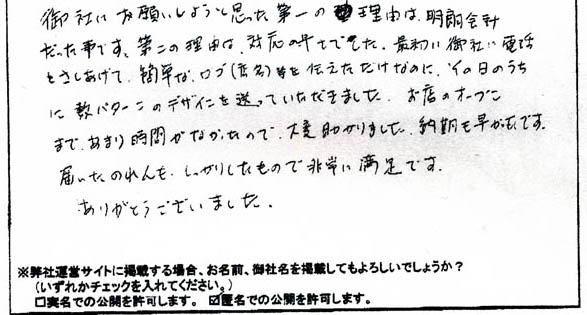 御社にお願いしようと思った第一の理由は、明朗会計
だった事です。第二の理由は、対応の早さでした。最初に御社に電話
をさしあげて、簡単な、ロゴ(店名)等を伝えただけなのに、その日のうち
に数パターンのデザインを送っていただきました。お店のオープン
まであまり時間がなかったので、大変助かりました。納期も早かったです。
届いたのれんも、しっかりしたもので非常に満足です。
ありがとうございました。
※弊社運営サイトに掲載する場合、お名前、御社名を掲載してもよろしいでしょうか?
(いずれかチェックを入れてください。)
□実名での公開を許可します。 ☑匿名での公開を許可します。